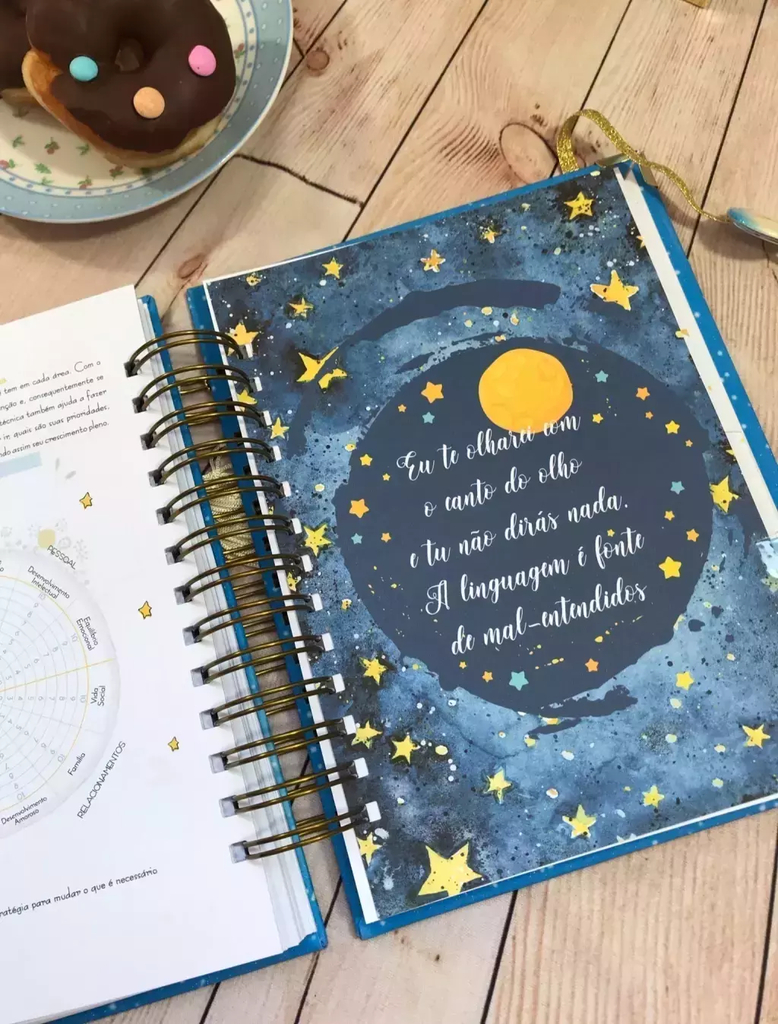 tem em cada área. Com a
nção e, consequentemente se
técnica também ajuda a fazer
ir quais são suas prioridades,
ndo assim seu crescimento pleno.
PESSOAL
Desenvolvimento
Intelectual
Equilíbrio
Emocional
Vida
Social
Família
Desenvolvimento
Amoroso
RELACIONAMENTOS
ratégia para mudar o que é necessário
Eu te olharei com
o canto do olho
e tu não dirás nada.
A linguagem é fonte
de mal-entendidos